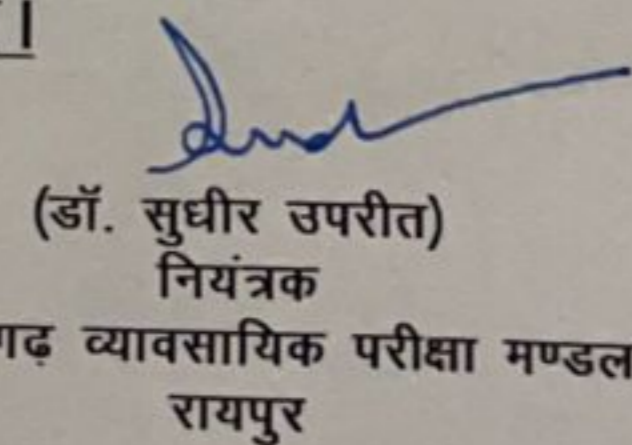 (डॉ. सुधीर उपरीत)
नियंत्रक
गढ़ व्यावसायिक परीक्षा मण्डल
रायपुर